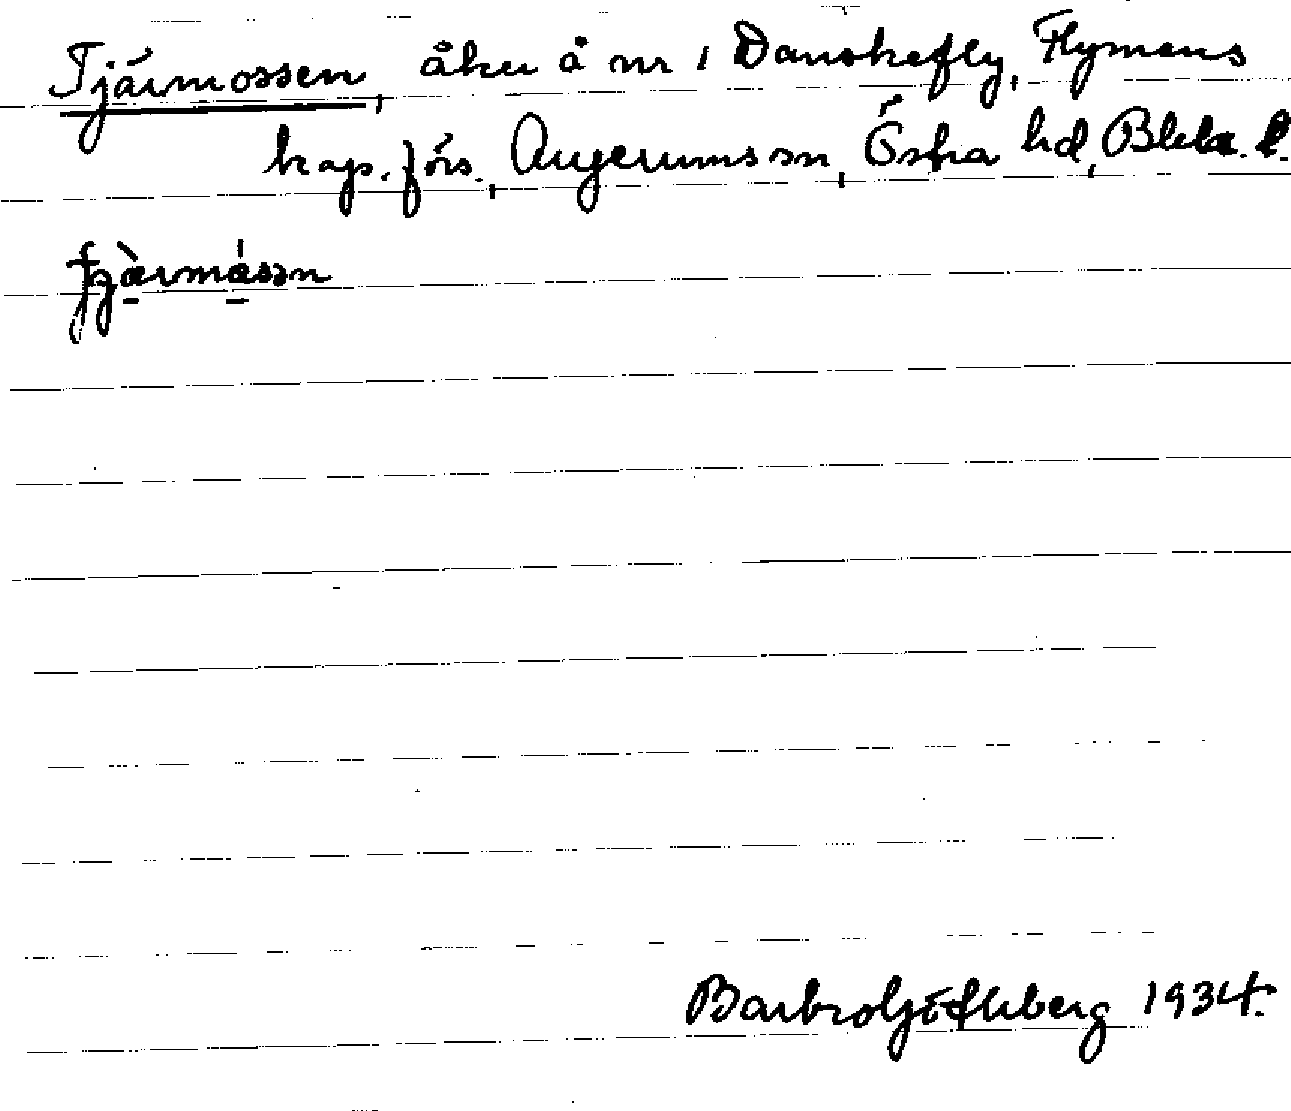 Tjärmossen, åker å nr 1 Danskefly, Flymens
kap. förs., Augerums sn, Östra hd, Blek. l.
Barbro Söderberg 1934.